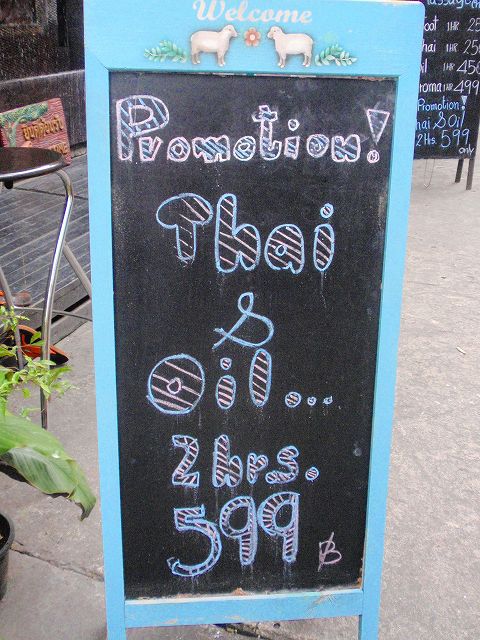 Welcome
Promotion!
Thai
&
Oil...
2hrs.
599 ฿
massage
oot 1HR 25
hai 1HR 25
il 1HR 450
roma 1HR 499
Promotion!
hai & Oil
2Hs. 599
only